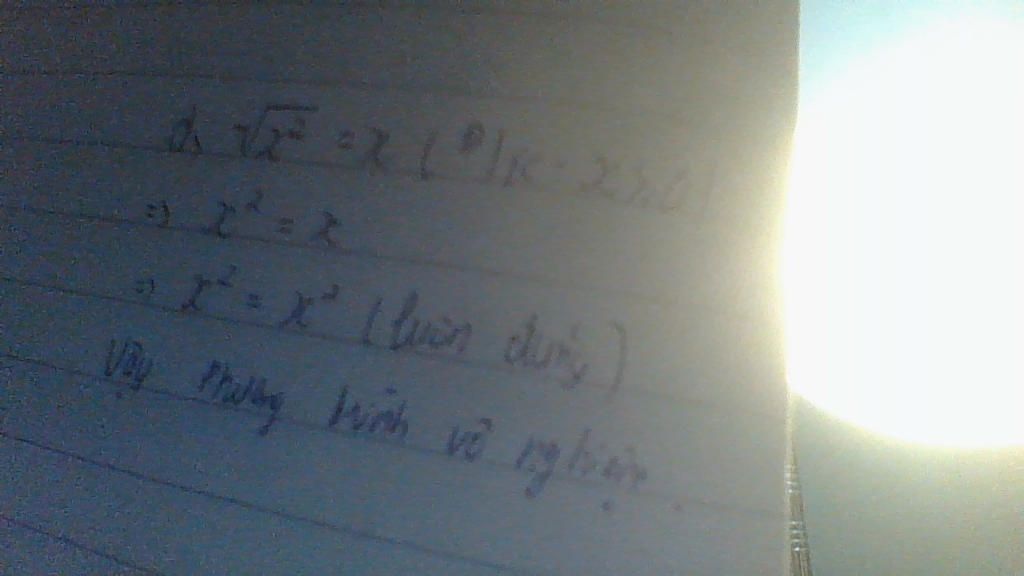 d, √x² = x (Đ|K: x ≥ 0)
=> x² = x
=> x² = x² (luôn đúng)
Vậy phương trình vô nghiệm.